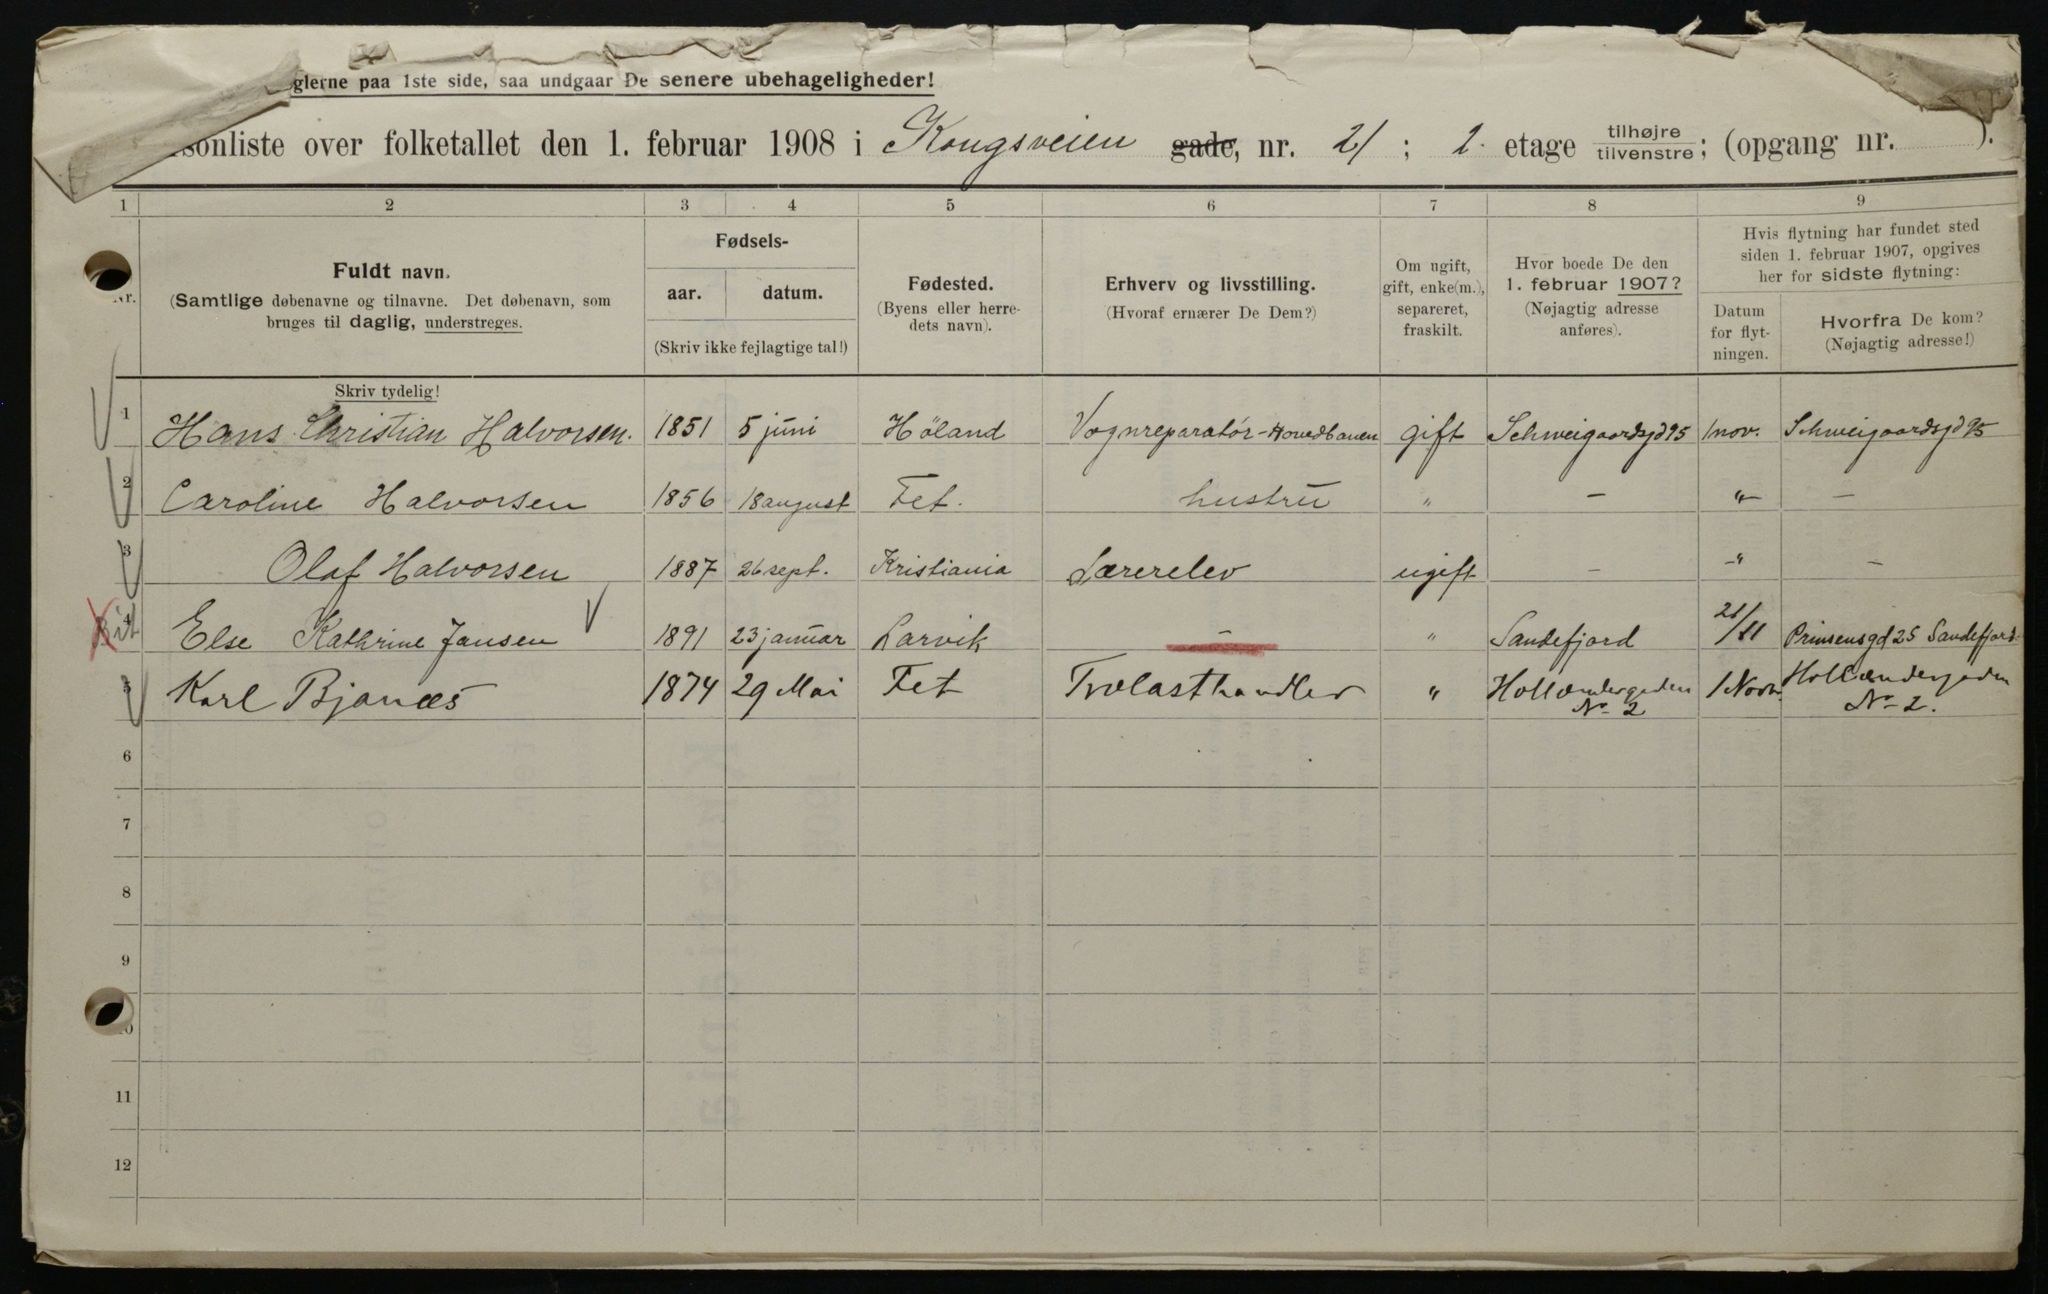 glerne paa 1ste side, saa undgaar De senere ubehageligheder!
sonliste over folketallet den 1. februar 1908 i Kongsveien gade, nr. 21; 2. etage tilhøjre tilvenstre; (opgang nr. ).
1 2 3 4 5 6 7 8 9
Nr.
Fuldt navn.
(Samtlige døbenavne og tilnavne. Det døbenavn, som
bruges til daglig, understreges.
Skriv tydelig!
Fødsels-
aar. datum.
(Skriv ikke fejlagtige tal!)
Fødested.
(Byens eller herre-
dets navn).
Erhverv og livsstilling.
(Hvoraf ernærer De Dem?)
Om ugift,
gift, enke(m.),
separeret,
fraskilt.
Hvor boede De den
1. februar 1907?
(Nøjagtig adresse
anføres).
Hvis flytning har fundet sted
siden 1. februar 1907, opgives
her for sidste flytning:
Datum
for flyt-
ningen.
Hvorfra De kom?
(Nøjagtig adresse!)
1 Hans Christian Halvorsen. 1851 5 juni Høland Vognreparatør-Hovedbanen gift Schweigaardsgd 95 1 nov. Schweigaardsgd 95
2 Caroline Halvorsen 1856 18 august Fet. hustru " – " –
3 Olaf Halvorsen 1887 26 sept. Kristiania Lærerelev ugift – " –
4 Else Kathrine Jansen 1891 23 januar Larvik – " Sandefjord 21/11 Prinsensgd 25 Sandefjord
5 Karl Bjanæs 1874 29 Mai Fet Trælasthandler " Hollændergaden No 2 1 Novbr. Hollændergaden No 2.
6
7
8
9
10
11
12